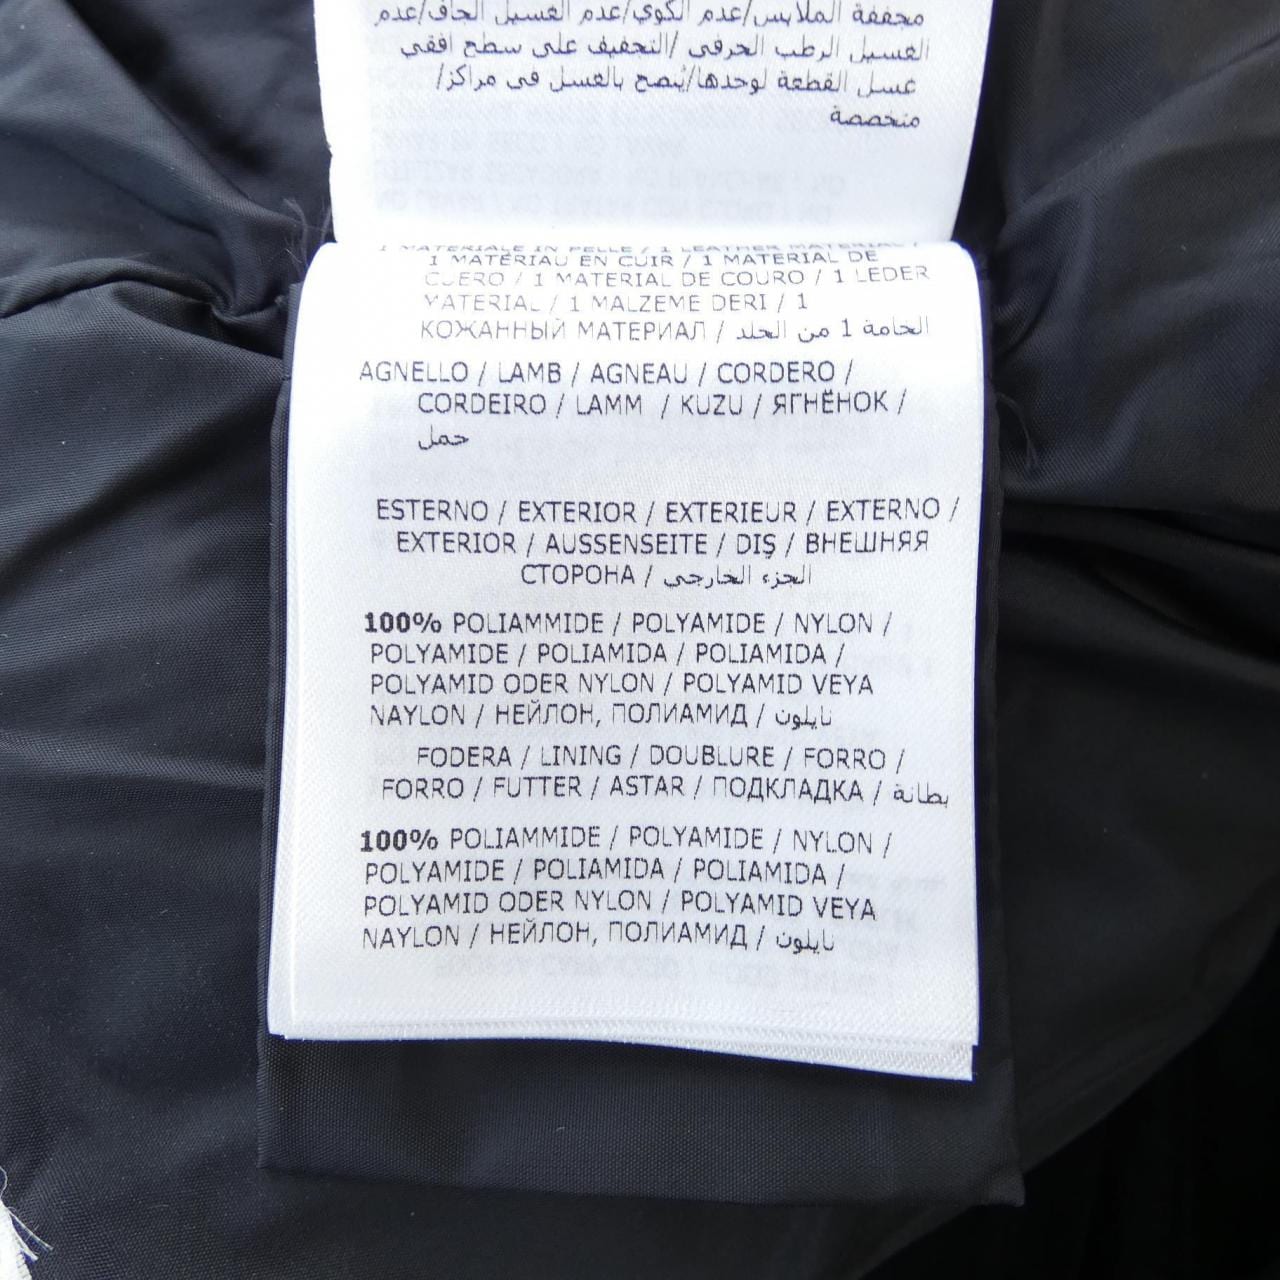 مجففة الملابس/عدم الكوي/عدم الغسيل الجاف/عدم
الغسيل الرطب الحرفي /التجفيف على سطح افقي
غسل القطعة لوحدها/يُنصح بالغسل في مراكز/
متخصصة
1 MATERIALE IN PELLE / 1 LEATHER MATERIAL /
1 MATÉRIAU EN CUIR / 1 MATERIAL DE
CUERO / 1 MATERIAL DE COURO / 1 LEDER
MATERIAL / 1 MALZEME DERI / 1
КОЖАННЫЙ МАТЕРИАЛ / الخامة 1 من الجلد
AGNELLO / LAMB / AGNEAU / CORDERO /
CORDEIRO / LAMM / KUZU / ЯГНЁНОК /
حمل
ESTERNO / EXTERIOR / EXTERIEUR / EXTERNO /
EXTERIOR / AUSSENSEITE / DIŞ / ВНЕШНЯЯ
СТОРОНА / الجزء الخارجي
100% POLIAMMIDE / POLYAMIDE / NYLON /
POLYAMIDE / POLIAMIDA / POLIAMIDA /
POLYAMID ODER NYLON / POLYAMID VEYA
NAYLON / НЕЙЛОН, ПОЛИАМИД / نايلون
FODERA / LINING / DOUBLURE / FORRO /
FORRO / FUTTER / ASTAR / ПОДКЛАДКА / بطانة
100% POLIAMMIDE / POLYAMIDE / NYLON /
POLYAMIDE / POLIAMIDA / POLIAMIDA /
POLYAMID ODER NYLON / POLYAMID VEYA
NAYLON / НЕЙЛОН, ПОЛИАМИД / نايلون